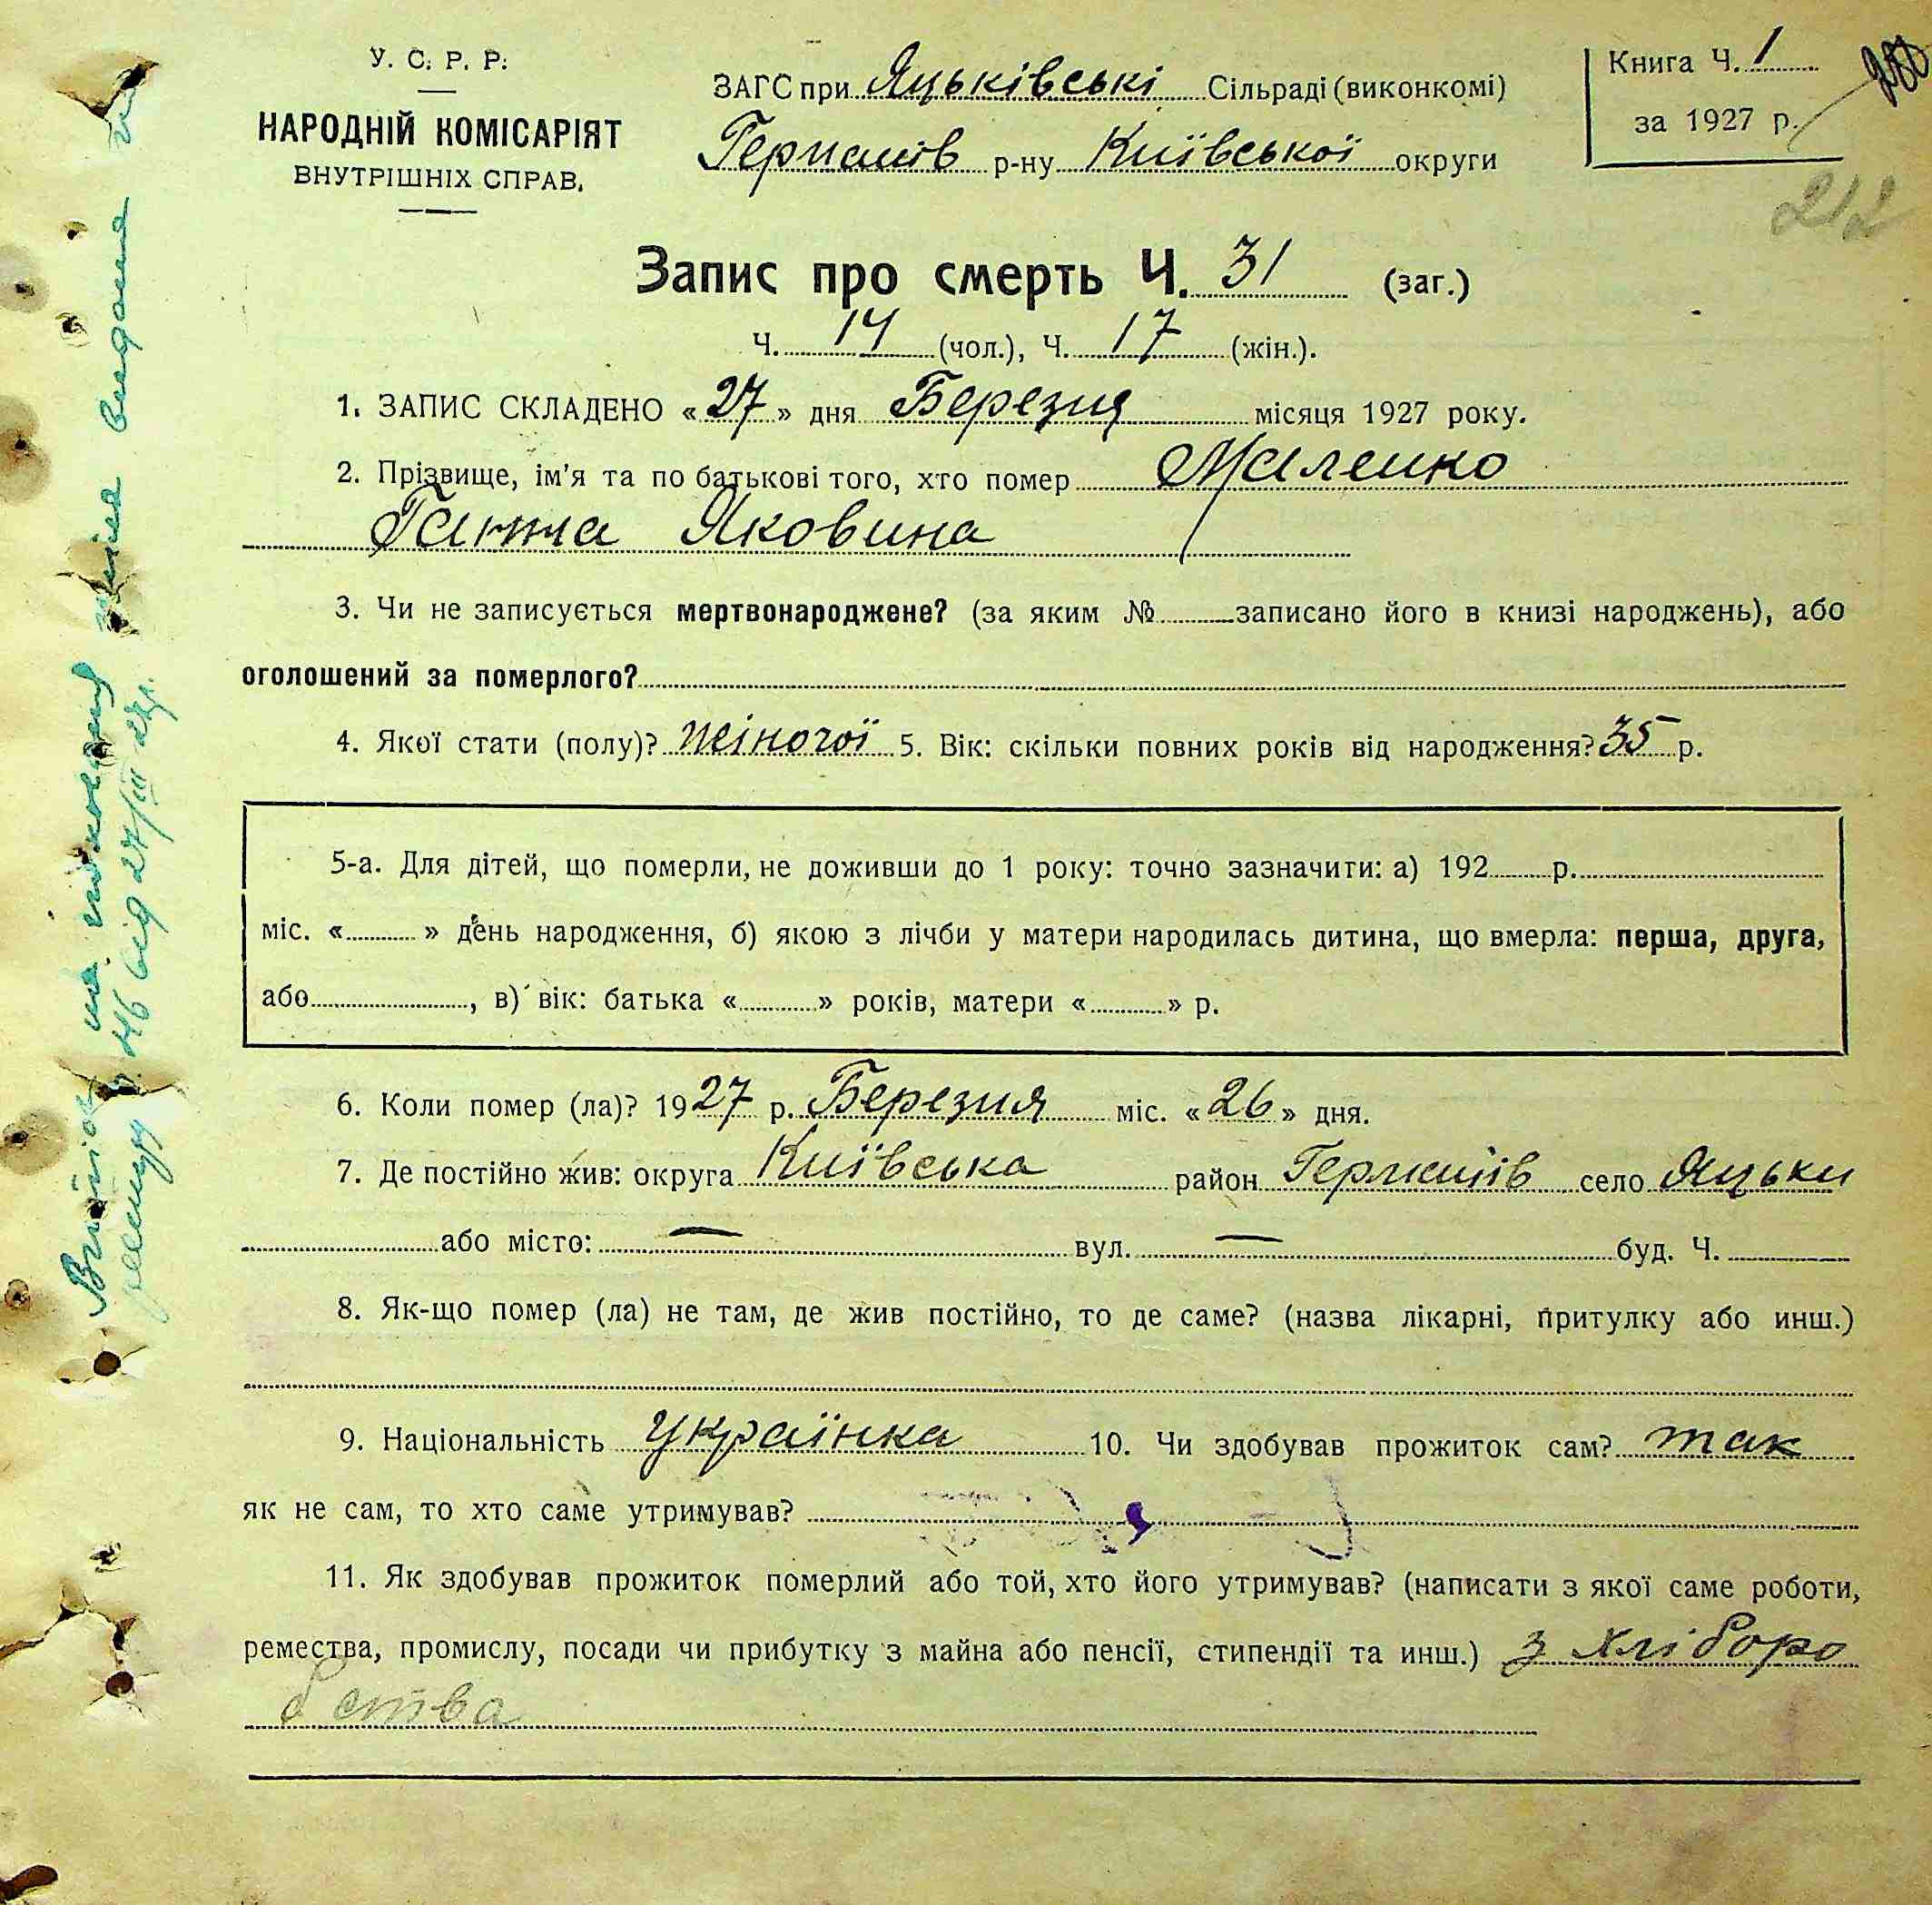 У. С. Р. Р.
НАРОДНІЙ КОМІСАРІЯТ
ВНУТРІШНІХ СПРАВ.
ЗАГС при Яцьківські Сільраді (виконкомі)
р-ну Київської округи
Книга Ч. 1
за 1927 р.
212
Запис про смерть Ч. 31 (заг.)
Ч. 14 (чол.), Ч. 17 (жін.).
1. ЗАПИС СКЛАДЕНО «27» дня Березня місяця 1927 року.
2. Прізвище, ім'я та по батькові того, хто помер Маленко
Ганна Яковина
3. Чи не записується мертвонароджене? (за яким № записано його в книзі народжень), або
оголошений за померлого?
4. Якої стати (полу)? жіночої 5. Вік: скільки повних років від народження? 35 р.
5-а. Для дітей, що померли, не доживши до 1 року: точно зазначити: а) 192 р.
міс. « » день народження, б) якою з лічби у матери народилась дитина, що вмерла: перша, друга,
або , в) вік: батька « » років, матери « » р.
6. Коли помер (ла)? 1927 р. Березня міс. «26» дня.
7. Де постійно жив: округа Київська район село Яцьки
або місто: — вул. — буд. Ч.
8. Як-що помер (ла) не там, де жив постійно, то де саме? (назва лікарні, притулку або инш.)
9. Національність Українка 10. Чи здобував прожиток сам? так
як не сам, то хто саме утримував?
11. Як здобував прожиток померлий або той, хто його утримував? (написати з якої саме роботи,
ремества, промислу, посади чи прибутку з майна або пенсії, стипендії та инш.) з хліборо
бства
на поховання тіла видана
46 від 27/III 27 р.